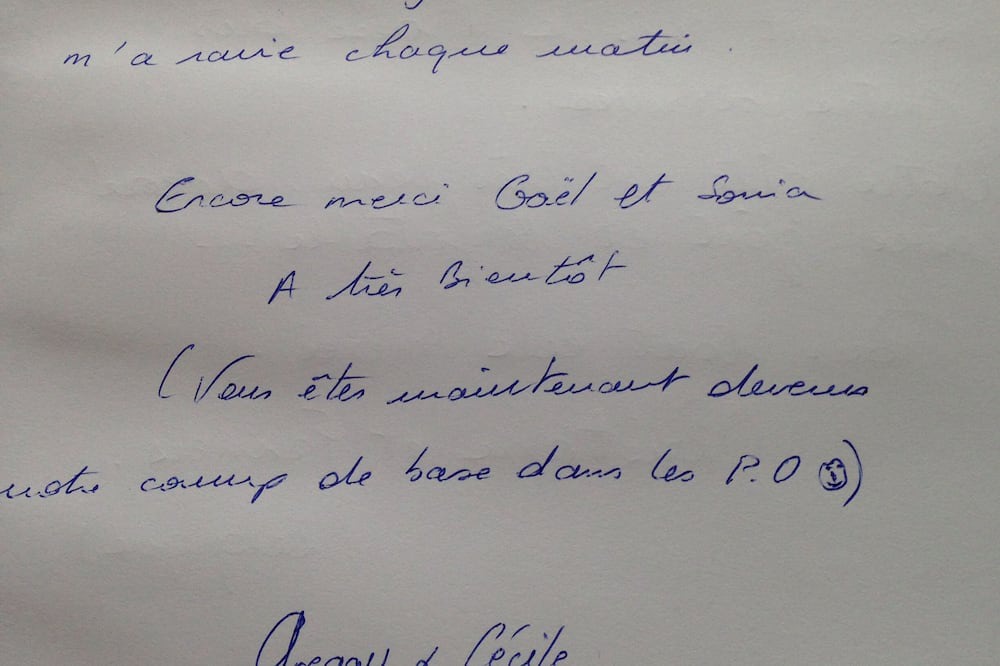 m'a ravie chaque matin.
Encore merci Gaël et Sonia
A très Bientôt
(Vous êtes maintenant devenus
notre camp de base dans les P.O ☺)
& Cécile